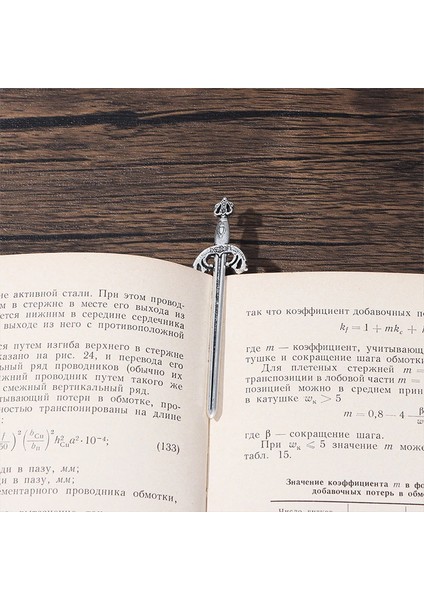 не активной стали. При этом провод-
м в стержне в месте его выхода из
яется нижним в середине сердечника
выходе из него с противоположной
ся путем изгиба верхнего в стержне
казано на рис. 24, и перевода его
льный ряд проводников (обычно их
жний проводник путем такого же
смежный вертикальный ряд.
тывающий потери в обмотке, про-
ностью транспонированы на длине
50)² (hCu/bп)² h²Cu a² · 10⁻⁴; (133)
ди в пазу, мм;
ди в пазу, мм;
ементарного проводника обмотки,
так что коэффициент добавочных по
kf = 1 + mkc +
где m — коэффициент, учитывающ
тушке и сокращение шага обмотки
Для плетеных стержней m =
транспозиции в лобовой части m =
позицией можно в среднем принят
в катушке wк > 5
m = 0,8 — 4
где β — сокращение шага.
При wк ⩽ 5 значение m може
табл. 15.
Значение коэффициента m в фо
добавочных потерь в обмо